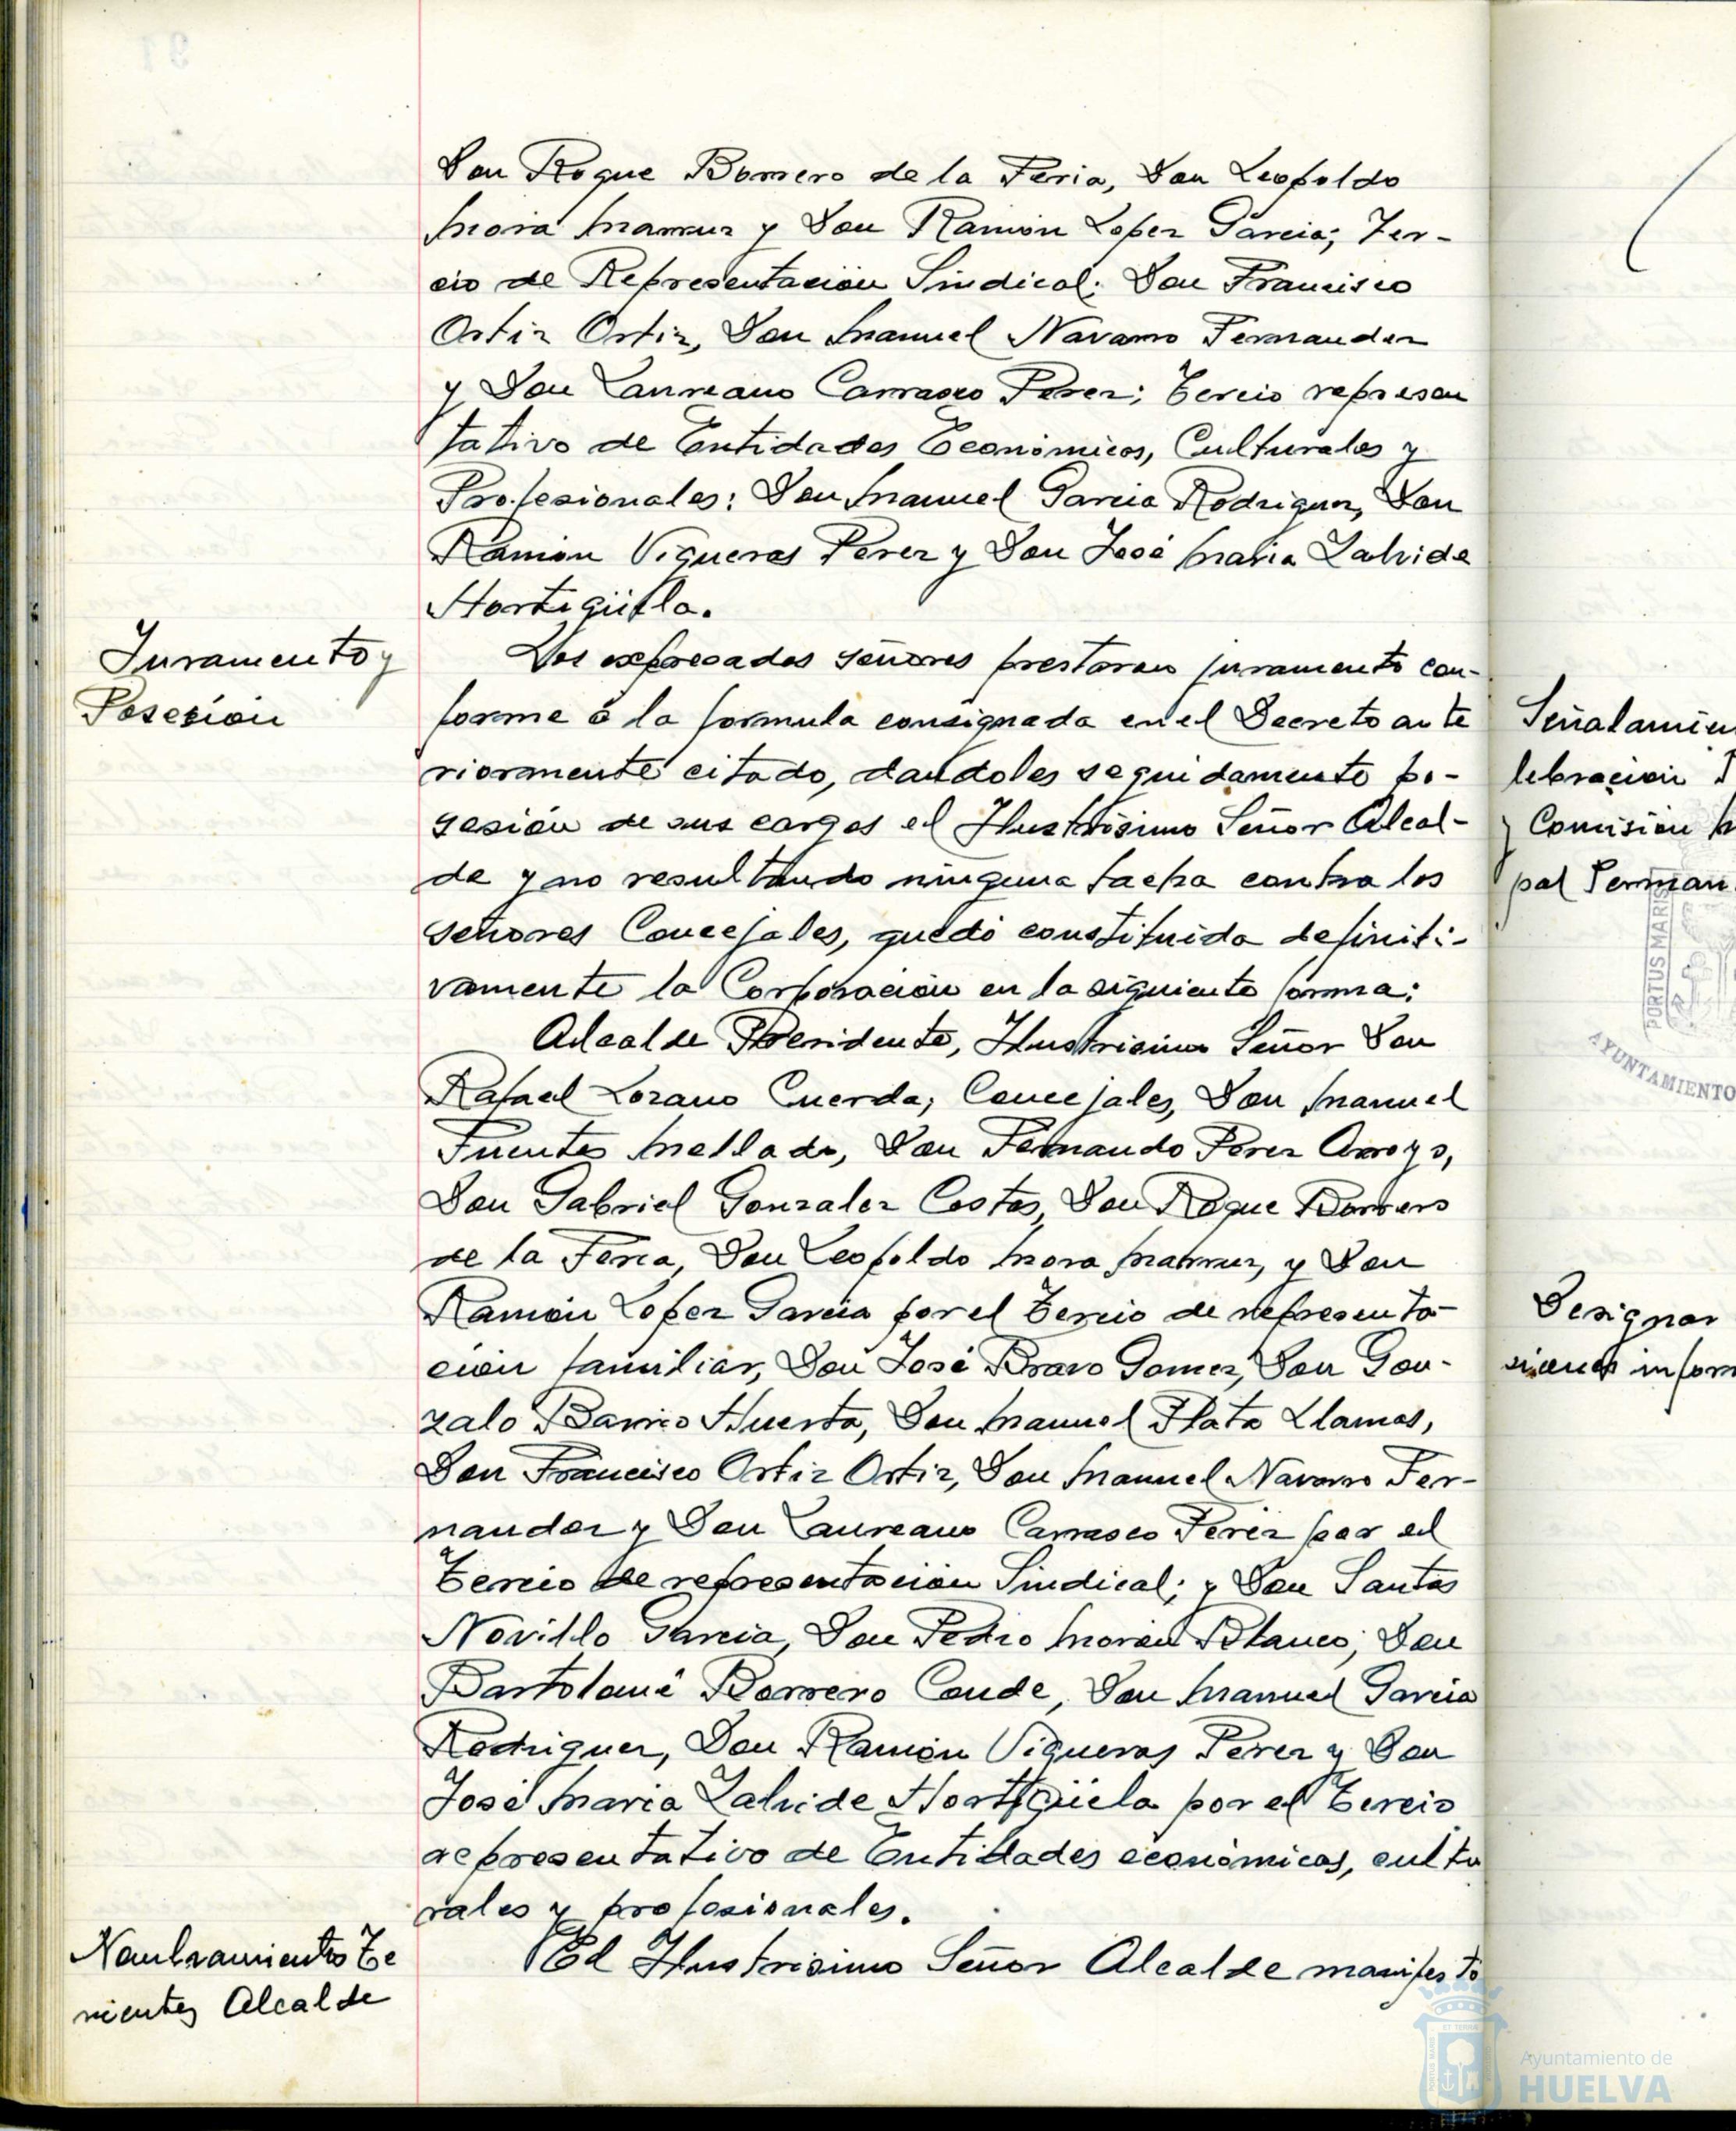 Don Roque Borrero de la Feria, Don Leopoldo
Mora Mamruz y Don Ramón Lopez Garcia; Ter-
cio de Representación Sindical: Don Francisco
Ortiz Ortiz, Don Manuel Navarro Fernandez
y Don Laureano Carrasco Perez; Tercio represen
tativo de Entidades Económicas, Culturales y
Profesionales: Don Manuel Garcia Rodriguez, Don
Ramón Vigueras Perez y Don José Maria Zalvide
Hortigüella.
Juramento y
Posesión
Los expresados señores prestaron juramento con-
forme á la formula consignada en el Decreto ante
riormente citado, dandoles seguidamente po-
sesión de sus cargos el Ilustrisimo Señor Alcal-
de y no resultando ninguna tacha contra los
señores Concejales, quedó constituida definiti-
vamente la Corporación en la siguiente forma:
Alcalde Presidente, Ilustrisimo Señor Don
Rafael Lozano Cuerda; Concejales, Don Manuel
Fuentes Mellado, Don Fernando Perez Arroyo,
Don Gabriel Gonzalez Costas, Don Roque Borrero
de la Feria, Don Leopoldo Mora Mamruz, y Don
Ramón Lopez Garcia por el Tercio de representa-
ción familiar, Don José Bravo Gomez, Don Gon-
zalo Barrio Huerta, Don Manuel Plata Llamas,
Don Francisco Ortiz Ortiz, Don Manuel Navarro Fer-
nandez y Don Laureano Carrasco Perez por el
Tercio de representación Sindical; y Don Santos
Novillo Garcia, Don Pedro Moron Blanco; Don
Bartolomé Borrero Conde, Don Manuel Garcia
Rodriguez, Don Ramón Vigueras Perez y Don
José Maria Zalvide Hortigüela por el Tercio
representativo de Entidades económicas, cultu
rales y profesionales.
Nombramientos Te
nientes Alcalde
El Ilustrisimo Señor Alcalde manifestó
Señalamien
lebración
y Comisión M
pal Perman
PORTUS MARIS
AYUNTAMIENTO
Designar
siones inform
Ayuntamiento de
HUELVA